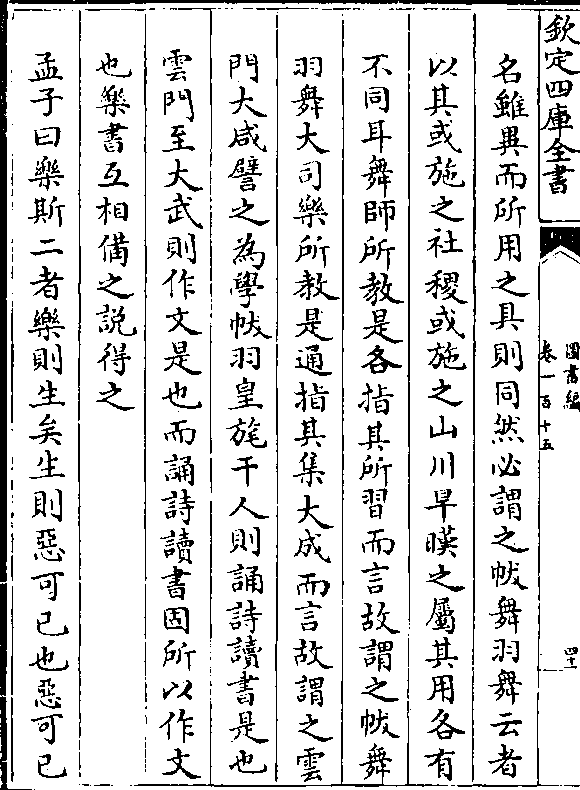 欽定四庫全書
圖書編
卷一百十五
四十
名雖異而所用之具則同然必謂之帗舞羽舞云者
以其或施之社稷或施之山川旱暵之屬其用各有
不同耳舞師所教是各指其所習而言故謂之帗舞
羽舞大司樂所教是通指其集大成而言故謂之雲
門大咸譬之為學帗羽皇旄干人則誦詩讀書是也
雲門至大武則作文是也而誦詩讀書固所以作文
也樂書互相備之說得之
孟子曰樂斯二者樂則生矣生則惡可已也惡可已